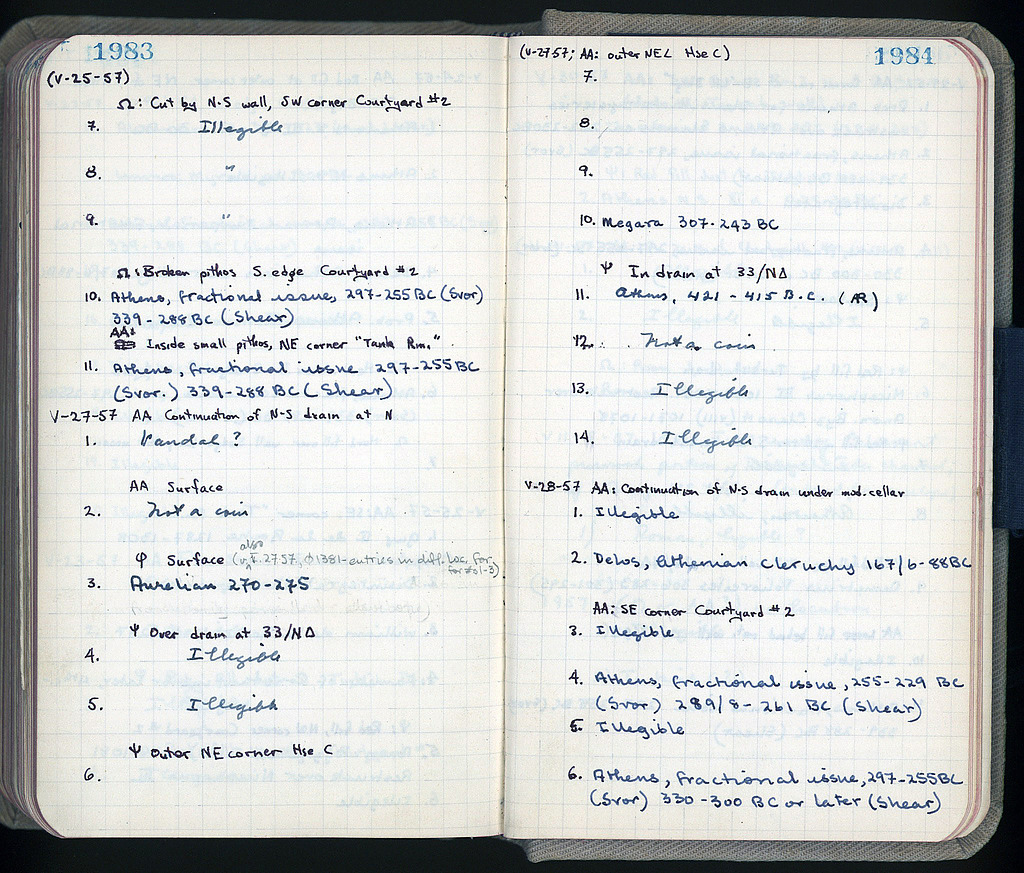 1983
(V-25-57)
Ω: Cut by N-S wall, SW corner Courtyard #2
7. Illegible
8. "
9. "
Ω: Broken pithos S. edge Courtyard #2
10. Athens, fractional issue, 297-255 BC (Svor)
339-288 BC (Shear)
AA:
Inside small pithos, NE corner "Tank Rm."
11. Athens, fractional issue 297-255 BC
(Svor.) 339-288 BC (Shear)
V-27-57 AA Continuation of N-S drain at N
1. Vandal ?
AA Surface
2. Not a coin
also
Ψ Surface (v. 27 57, Φ1381-entries in diff. loc. for
for #01-3)
3. Aurelian 270-275
Ψ Over drain at 33/ΝΔ
4. Illegible
5. Illegible
Ψ Outer NE corner Hse C
6.
(V-27-57; AA: outer NEC Hse C)
1984
7.
8.
9.
10. Megara 307-243 BC
Ψ In drain at 33/ΝΔ
11. Athens, 421 - 415 B.C. (AR)
12. Not a coin
13. Illegible
14. Illegible
V-28-57 AA: Continuation of N-S drain under mod. cellar
1. Illegible
2. Delos, Athenian Cleruchy 167/6-88BC
AA: SE corner Courtyard #2
3. Illegible
4. Athens, fractional issue, 255-229 BC
(Svor) 289/8-261 BC (Shear)
5. Illegible
6. Athens, fractional issue, 297-255BC
(Svor) 330-300 BC or later (Shear)